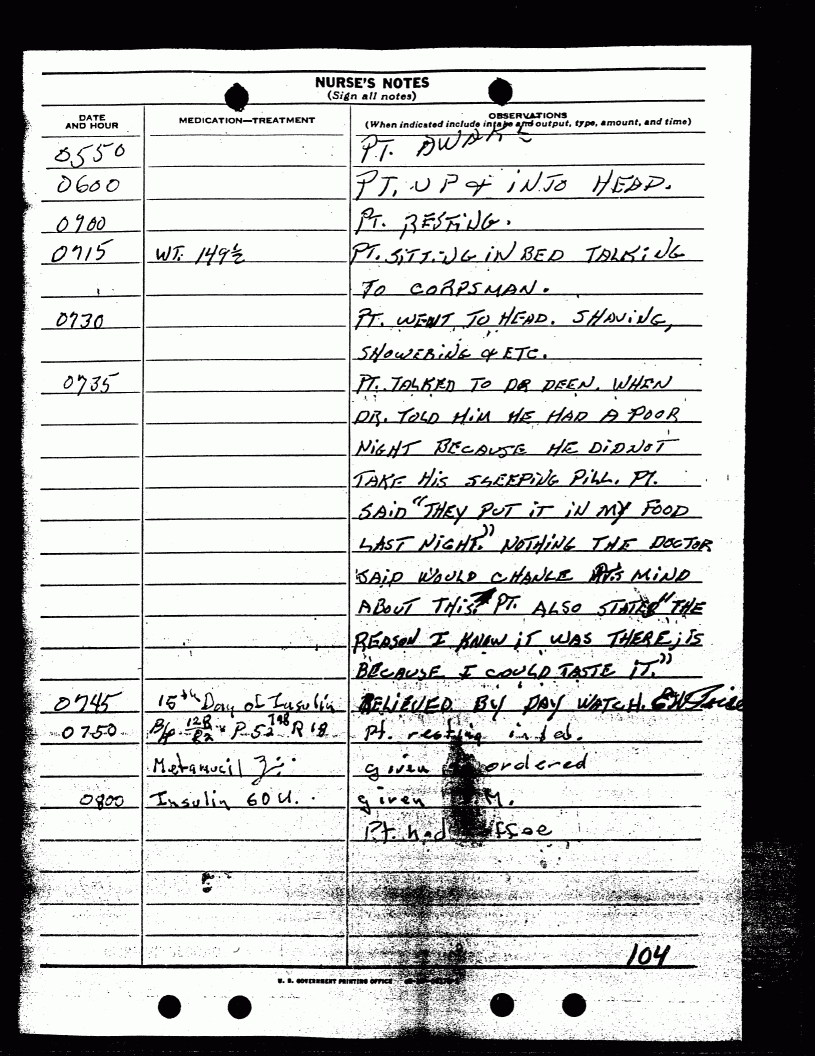 NURSE'S NOTES
(Sign all notes)
DATE AND HOUR MEDICATION—TREATMENT OBSERVATIONS
(When indicated include intake and output, type, amount, and time)
0550 PT. AWAKE
0600 PT. UP & INTO HEAD.
0700 PT. RESTING.
0715 WT. 149½ PT. SITTING IN BED TALKING
TO CORPSMAN.
0730 PT. WENT TO HEAD. SHAVING,
SHOWERING & ETC.
0735 PT. TALKED TO DR DEEN. WHEN
DR. TOLD HIM HE HAD A POOR
NIGHT BECAUSE HE DID NOT
TAKE HIS SLEEPING PILL. PT.
SAID "THEY PUT IT IN MY FOOD
LAST NIGHT." NOTHING THE DOCTOR
SAID WOULD CHANGE MIND
ABOUT THIS. PT. ALSO STATED "THE
REASON I KNOW IT WAS THERE, IS
BECAUSE I COULD TASTE IT."
0745 15th Day of Insulin RELIEVED BY DAY WATCH.
0750 B/p P-52 R 18 Pt. resting in bed.
Metamucil given ordered
0800 Insulin 60 U. given M.
Pt. had
104
U. S. GOVERNMENT PRINTING OFFICE